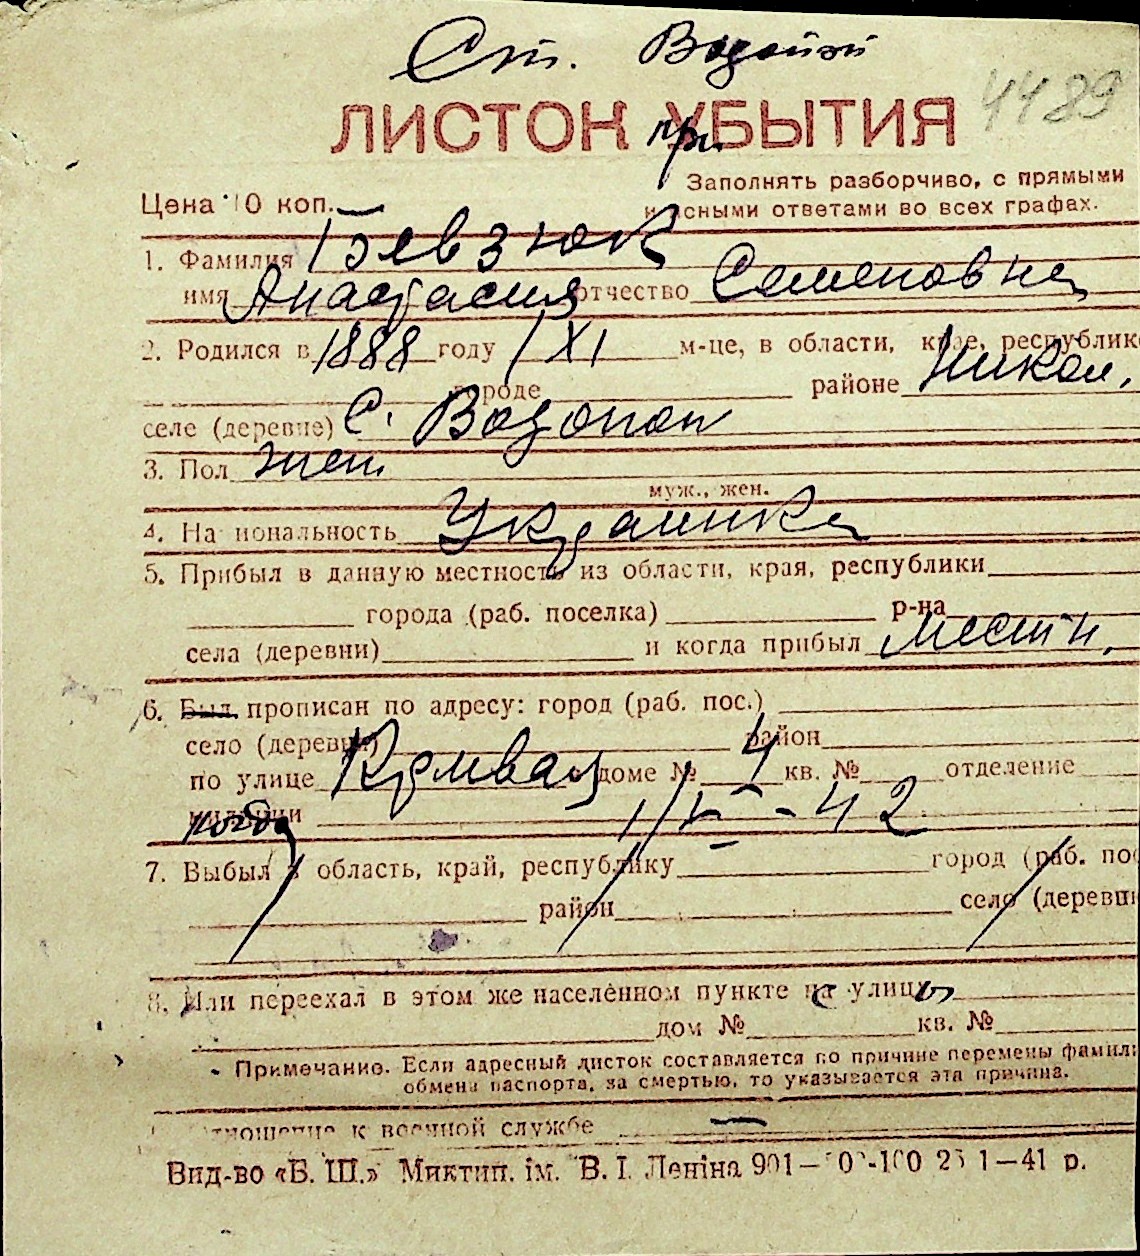 Ст. Водопой
4489
ЛИСТОК УБЫТИЯ
при
Заполнять разборчиво, с прямыми
и ясными ответами во всех графах.
Цена 10 коп.
1. Фамилия Бевзюк
имя Анастасия отчество Семеновна
2. Родился в 1888 году 1 XI м-це, в области, крае, республике
городе районе Никол.
селе (деревне) С. Водопой
3. Пол жен.
муж., жен.
4. Национальность Украинка
5. Прибыл в данную местность из области, края, республики
города (раб. поселка) р-на
села (деревни) и когда прибыл местн.
6. Был прописан по адресу: город (раб. пос.)
село (деревня) район
по улице доме № 4 кв. № отделение
милиции когда 42
7. Выбыл в область, край, республику город (раб. пос
район село (деревн
8. Или переехал в этом же населённом пункте с улицы
дом № кв. №
Примечание. Если адресный листок составляется по причине перемены фамили
обмена паспорта, за смертью, то указывается эта причина.
Отношение к военной службе —
Вид-во «Б. Ш.» Миктип. ім. В. І. Леніна 901— 1—41 р.